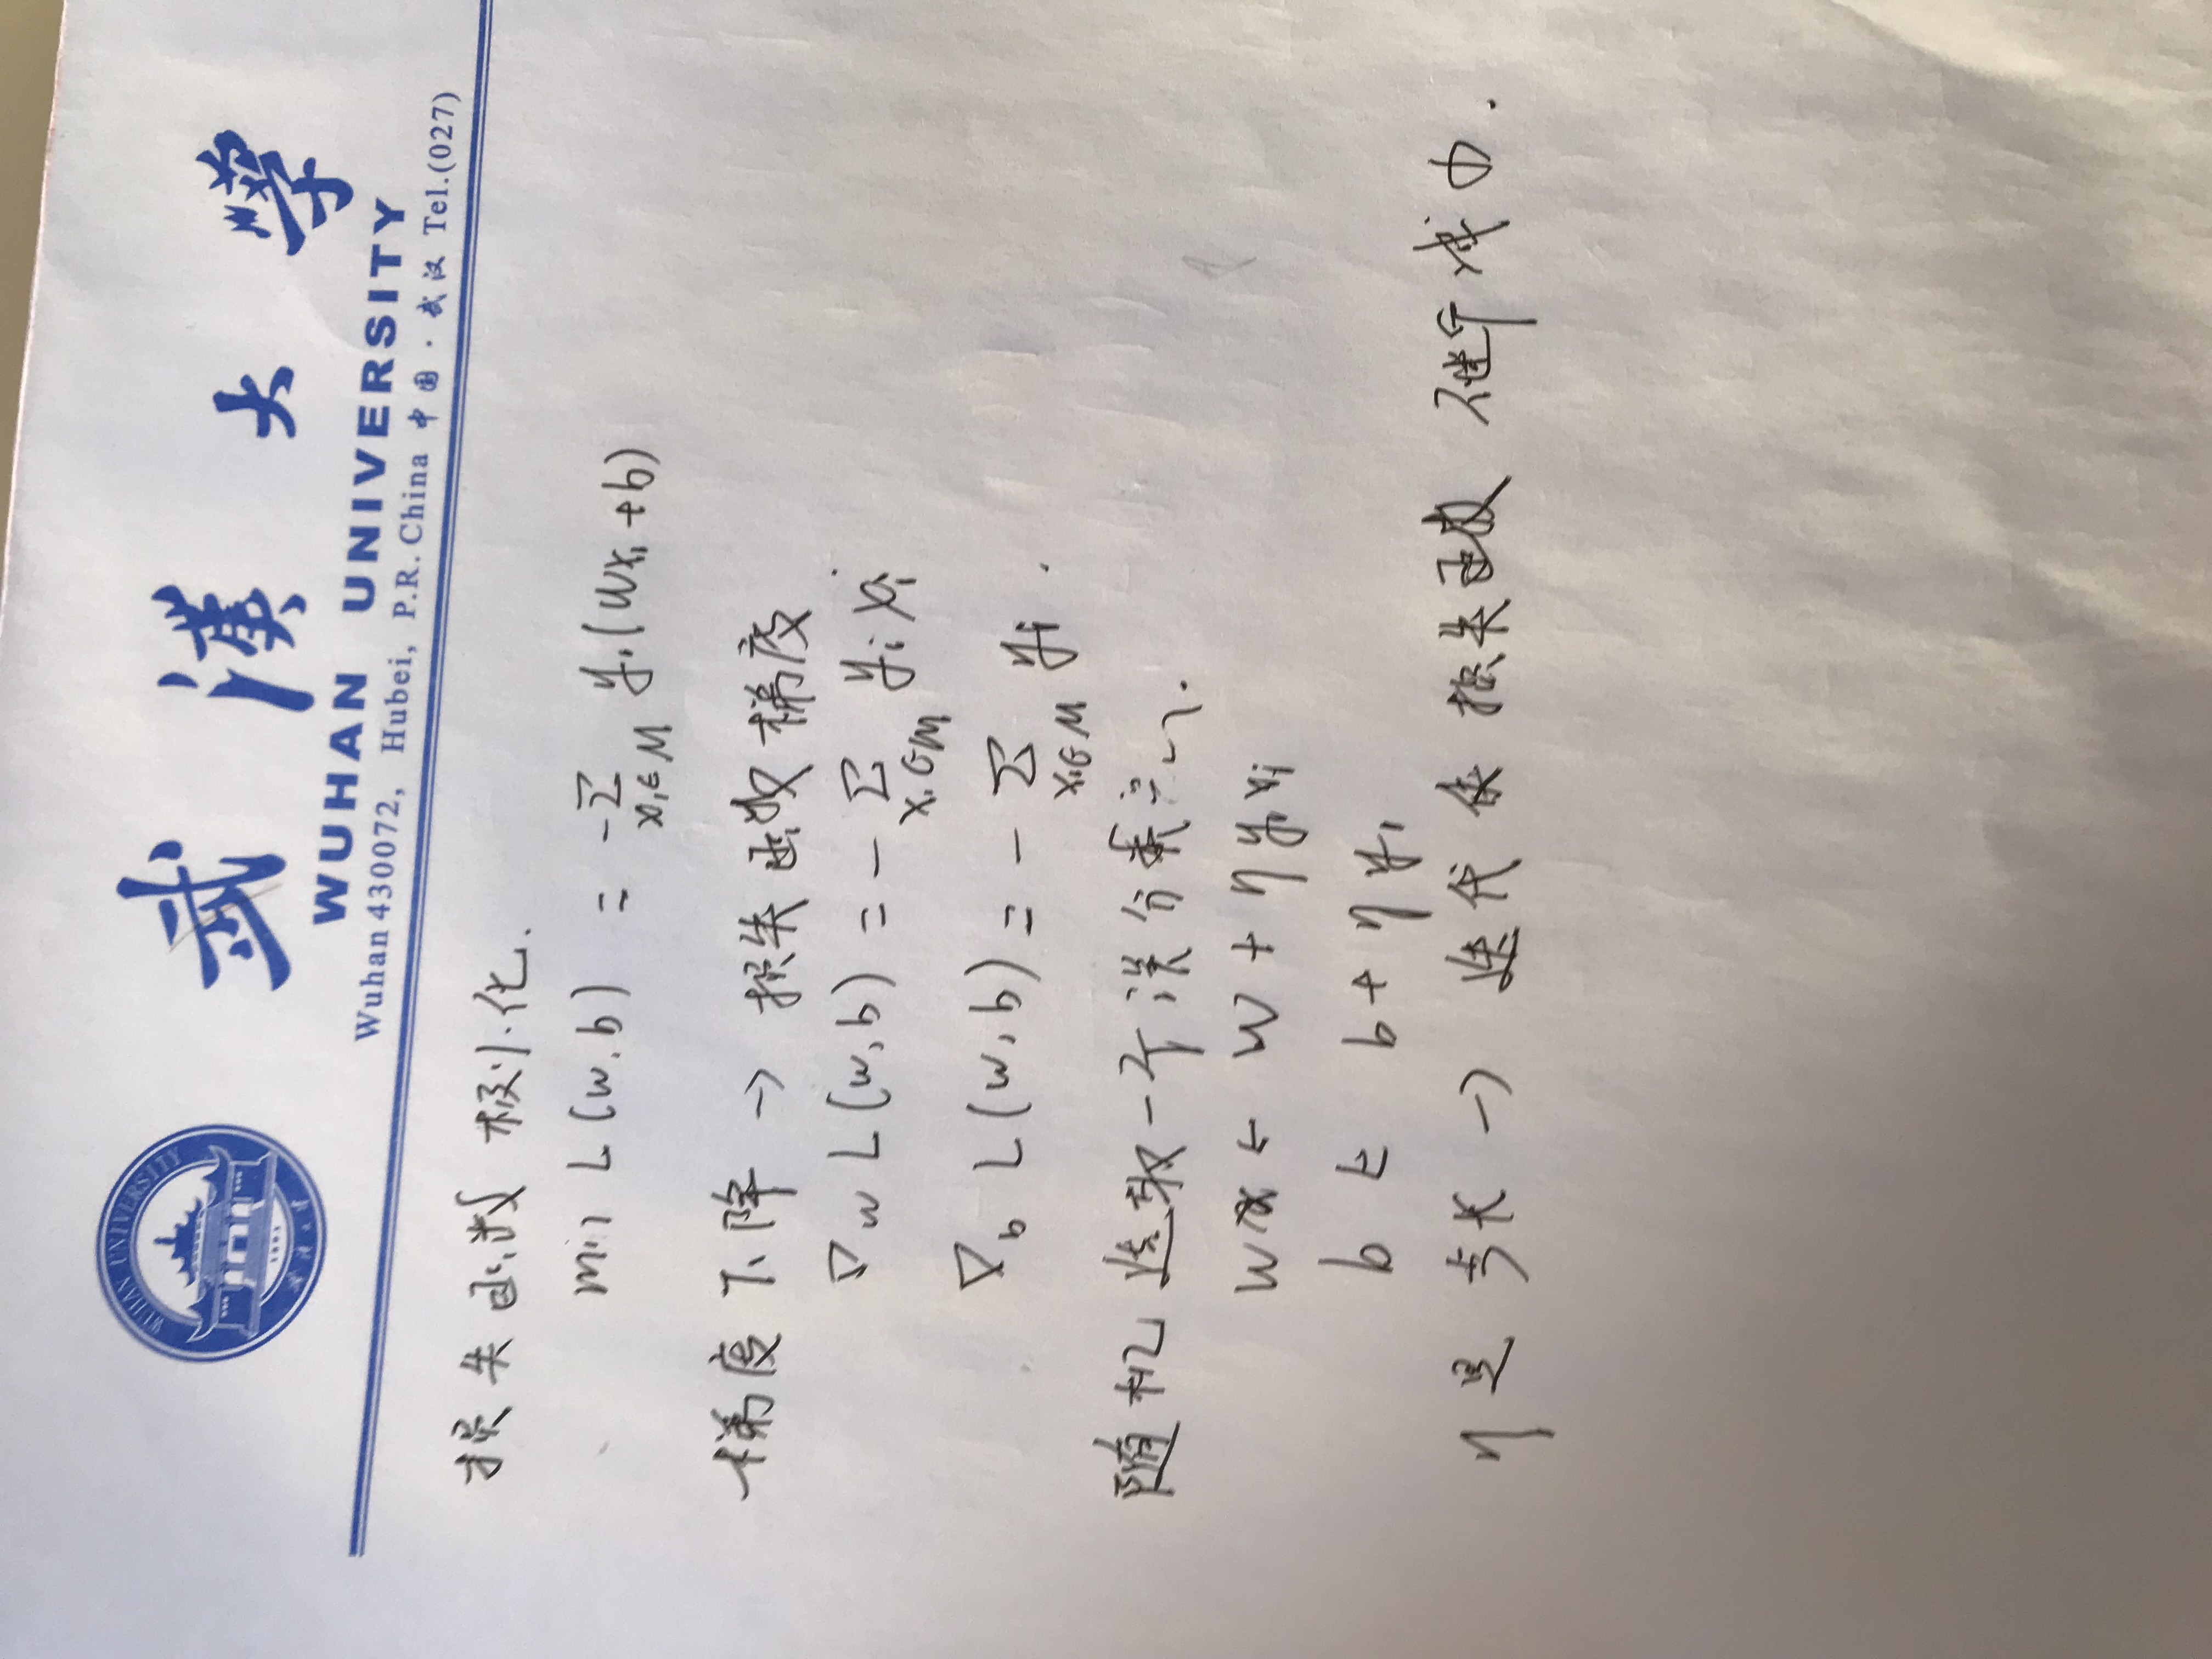 WUHAN UNIVERSITY
1893
武汉大学
武漢大學
WUHAN UNIVERSITY
Wuhan 430072, Hubei, P.R. China 中国·武汉 Tel.(027)
损失函数 极小化.
min L(w,b) = -Σ y_i(wx_i+b)
x_i∈M
梯度下降 → 损失函数梯度
∇_w L(w,b) = - Σ y_i x_i
x_i∈M
∇_b L(w,b) = - Σ y_i .
x_i∈M
随机选取一个误分类点
w ← w + η y_i x_i
b ← b + η y_i
η是步长 → 迭代使损失函数不断减小.